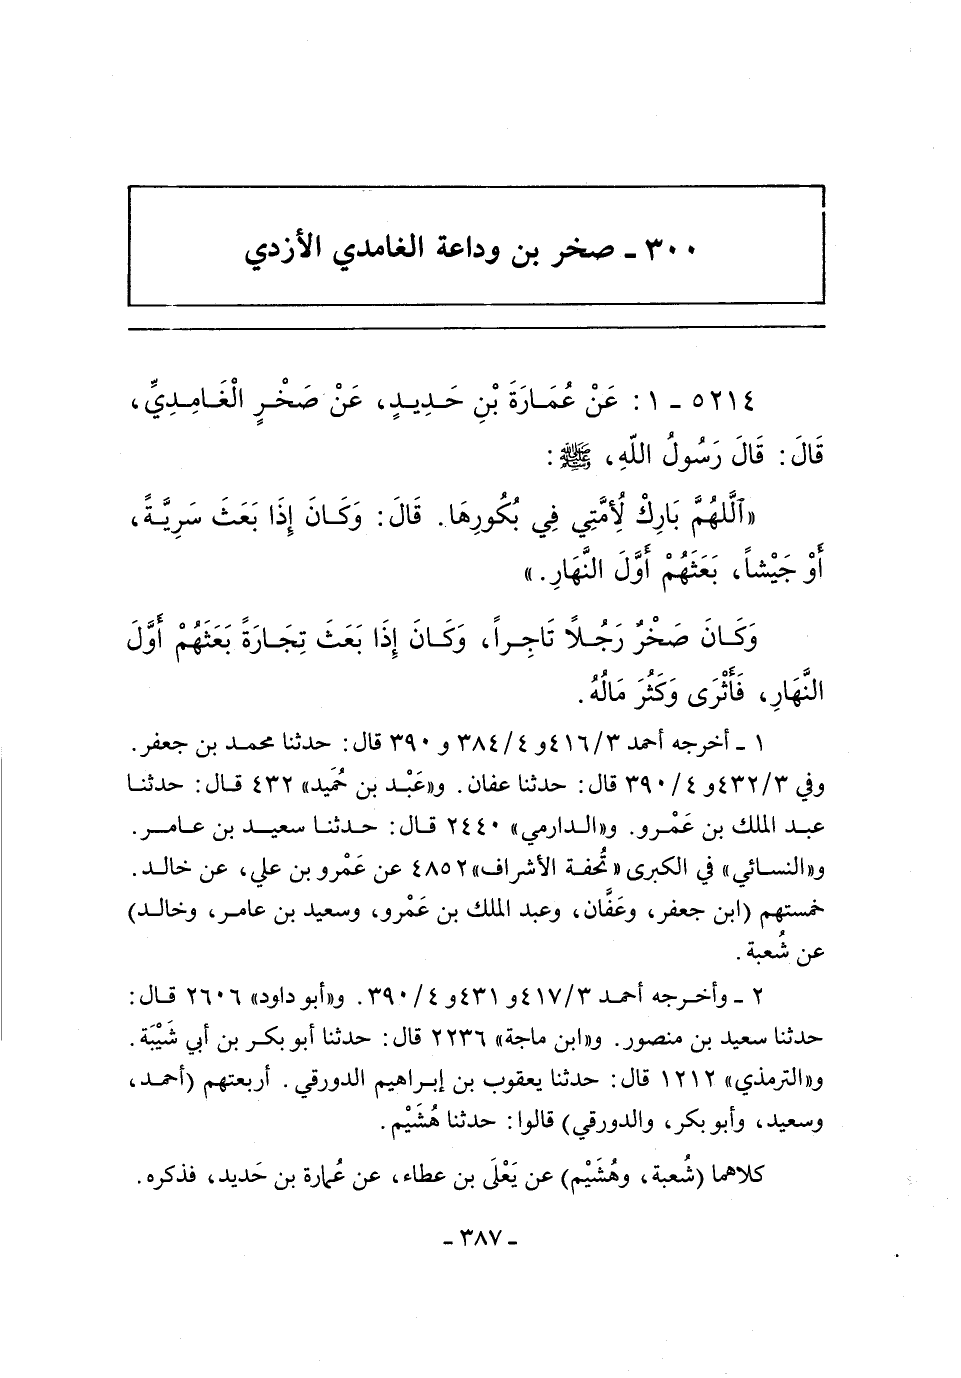 ٣٠٠ ـ صخر بن وداعة الغامدي الأزدي
٥٢١٤ ـ ١ : عَنْ عُمَـارَةَ بْنِ حَـدِيـدٍ، عَنْ صَخْـرٍ الْغَـامِـدِيِّ،
قَالَ : قَالَ رَسُولُ اللّهِ، ﷺ :
«اَللَّهُمَّ بَارِكْ لُأِمَّتِي فِي بُكُورِهَا. قَالَ : وَكَـانَ إِذَا بَعَثَ سَرِيَّـةً،
أَوْ جَيْشاً، بَعَثَهُمْ أَوَّلَ النَّهَارِ. »
وَكَـانَ صَخْرٌ رَجُـلاً تَاجِـراً، وَكَـانَ إِذَا بَعَثَ تِجَـارَةً بَعَثَهُمْ أَوَّلَ
النَّهَارِ، فَأَثْرَى وَكَثُرَ مَالُهُ .
١ ـ أخرجه أحمد ٤١٦/٣و ٣٨٤/٤ و ٣٩٠ قال : حدثنا محمـد بن جعفر.
وفي ٤٣٢/٣و ٣٩٠/٤ قال : حدثنا عفان . و«عَبْـد بن حُمَيد» ٤٣٢ قـال : حدثنـا
عبـد الملك بن عَمْـرو. و«الـدارمي» ٢٤٤٠ قـال : حـدثنـا سعيـد بن عـامـر.
و«النسـائي» في الكبرى «تُحفـة الأشراف»٤٨٥٢ عن عَمْرو بن علي، عن خالـد.
خمستهم (ابن جعفر، وعَفَّان، وعبد الملك بن عَمْرو، وسعيد بن عامـر، وخالـد)
عن شُعبة .
٢ ـ وأخـرجه أحمـد ٤١٧/٣و ٤٣١و ٣٩٠/٤. و«أبو داود» ٢٦٠٦ قـال :
حدثنا سعيد بن منصور. و«ابن ماجة» ٢٢٣٦ قال : حدثنا أبو بكـر بن أبي شَيْبَة .
و«الترمذي» ١٢١٢ قال : حدثنا يعقوب بن إبـراهيم الدورقي . أربعتهم (أحمـد،
وسعيد، وأبو بكر، والدورقي) قالوا : حدثنا هُشَيْم .
كلاهما (شُعبة، وهُشَيْم) عن يَعْلَى بن عطاء، عن عُمارة بن حَديد، فذكره .
ـ ٣٨٧ ـ